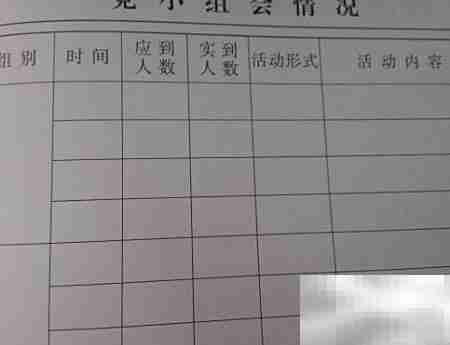 党小组会情况
组别 时间 应到人数 实到人数 活动形式 活动内容